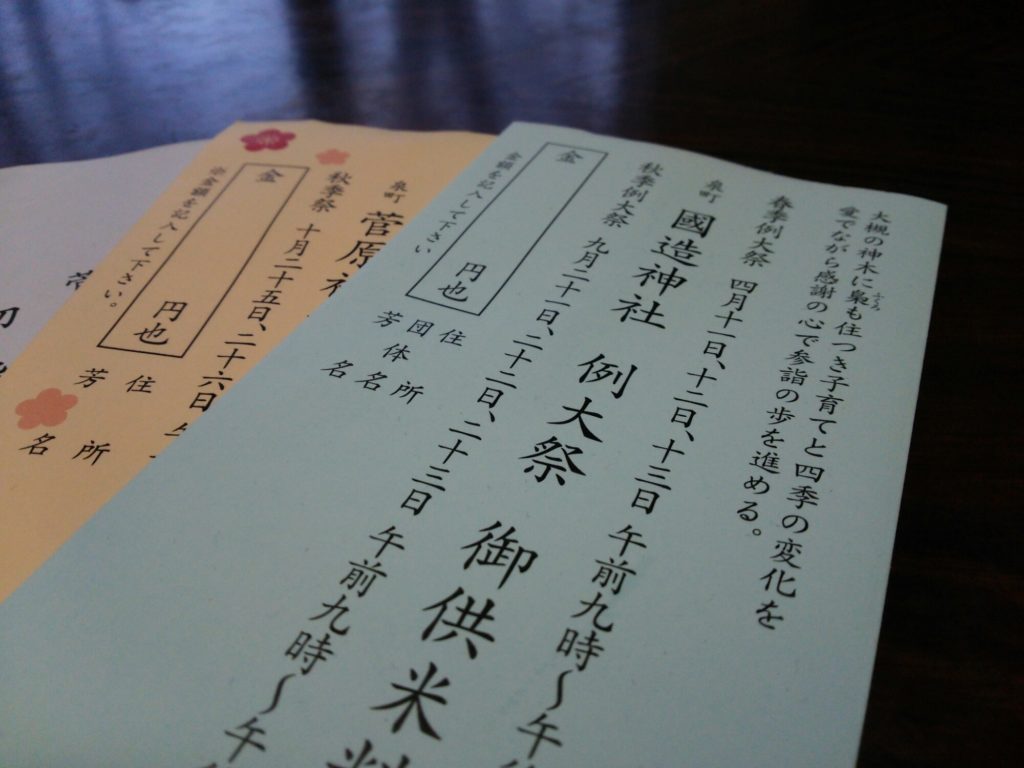 大槻の神木に梟も住つき子育てと四季の変化を
ふくろ
愛でながら感謝の心で参詣の歩を進める。
春季例大祭 四月十一日、十二日、十三日 午前九時～午
泉町 國造神社 例大祭 御供米料
秋季例大祭 九月二十一日、二十二日、二十三日 午前九時～午
金 円也
金額を記入して下さい
住所
団体名
芳名
泉町 菅原神
秋季祭 十月二十五日、二十六日 午
金 円也
金額を記入して下さい。
住所
芳名